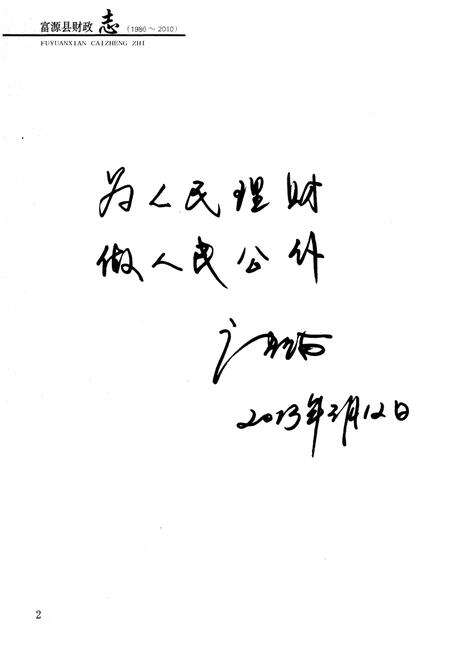 富源县财政志(1986～2010)
FUYUANXIAN CAIZHENG ZHI
为人民理财
做人民公仆
2013年3月12日
2